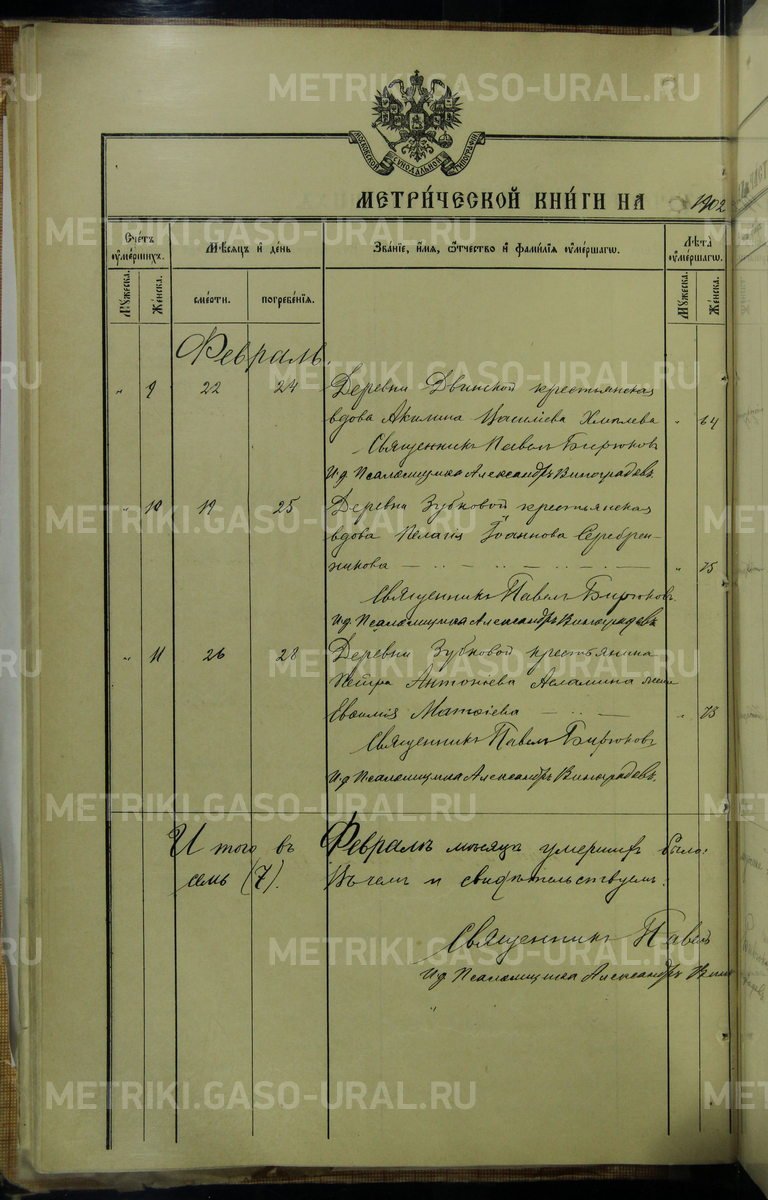 МОСКОВСКОЙ СѴНОДАЛЬНОЙ ТИПОГРАФІИ
МЕТРИ́ЧЕСКОЙ КНИ́ГИ НА 1902
Сче́тъ ᲂу҆ме́ршихъ.
Мѣ́сяцъ и҆ де́нь
Зва́нїе, и҆́мѧ, ѻ҆́тчество и҆ фамилїѧ ᲂу҆ме́ршагѡ.
Лѣта̀ ᲂу҆ме́ршагѡ.
Мꙋ́жеска.
Же́нска.
сме́рти.
погребе́нїѧ.
Мꙋ́жеска.
Же́нска.
Февраль.
" 9 22 24 Деревни Двинской крестьянская
вдова Акилина Василіева Хмылева " 64
Священникъ Павелъ Бирюковъ
И.д. Псаломщика Александръ Виноградовъ.
" 10 19 25 Деревни Зубковой крестьянская
вдова Пелагія Іоаннова Серебрен-
никова " 75
Священникъ Павелъ Бирюковъ.
И.д. Псаломщика Александръ Виноградовъ
" 11 26 28 Деревни Зубковой крестьянина
Петра Антоніева Асламина жена
Евѳимія Матѳіева " 73
Священникъ Павелъ Бирюковъ
И.д. Псаломщика Александръ Виноградовъ.
Итого въ Февралѣ мѣсяцѣ умершихъ было:
семь (7). Въ чемъ и свидѣтельствуемъ:
Священникъ Павелъ
И.д. Псаломщика Александръ Вино
METRIKI.GASO-URAL.RU